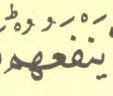 يَنْفَعُهُمْ